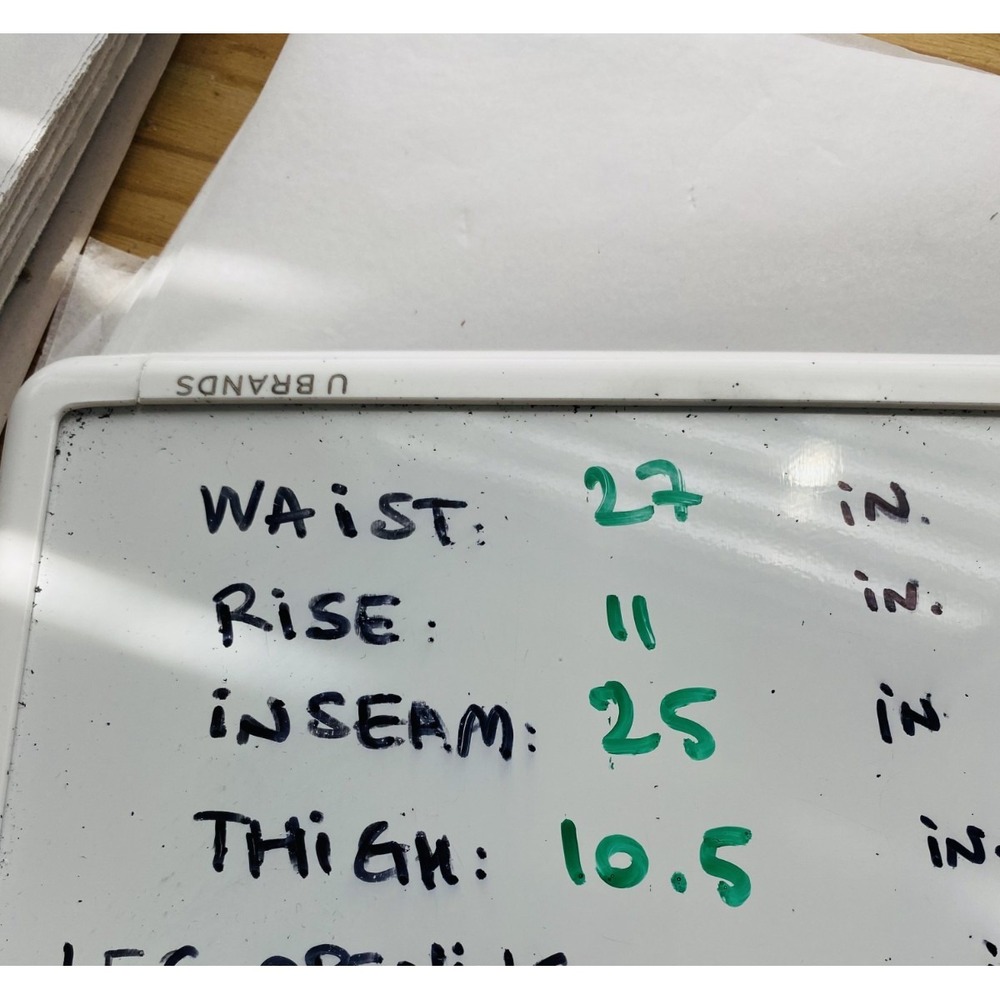 U BRANDS
WAiST: 27 iN.
RiSE: 11 iN.
iNSEAM: 25 iN
THiGH: 10.5 iN.